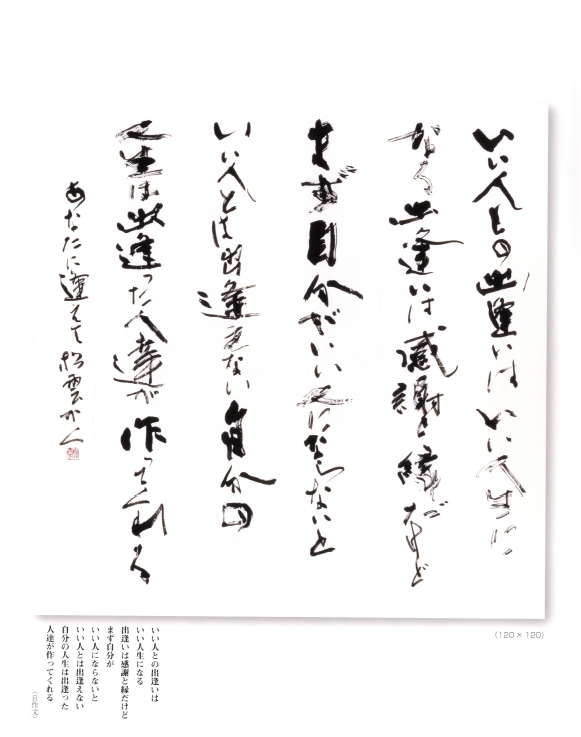 いい人との出逢いはいい人生に
なる出逢いは感謝と縁だけど
まず自分がいい人にならないと
いい人とは出逢えない自分の
人生は出逢った人達が作ってくれる
あなたに逢えて
(120 × 120)
いい人との出逢いは
いい人生になる
出逢いは感謝と縁だけど
まず自分が
いい人にならないと
いい人とは出逢えない
自分の人生は出逢った
人達が作ってくれる
（自作文）